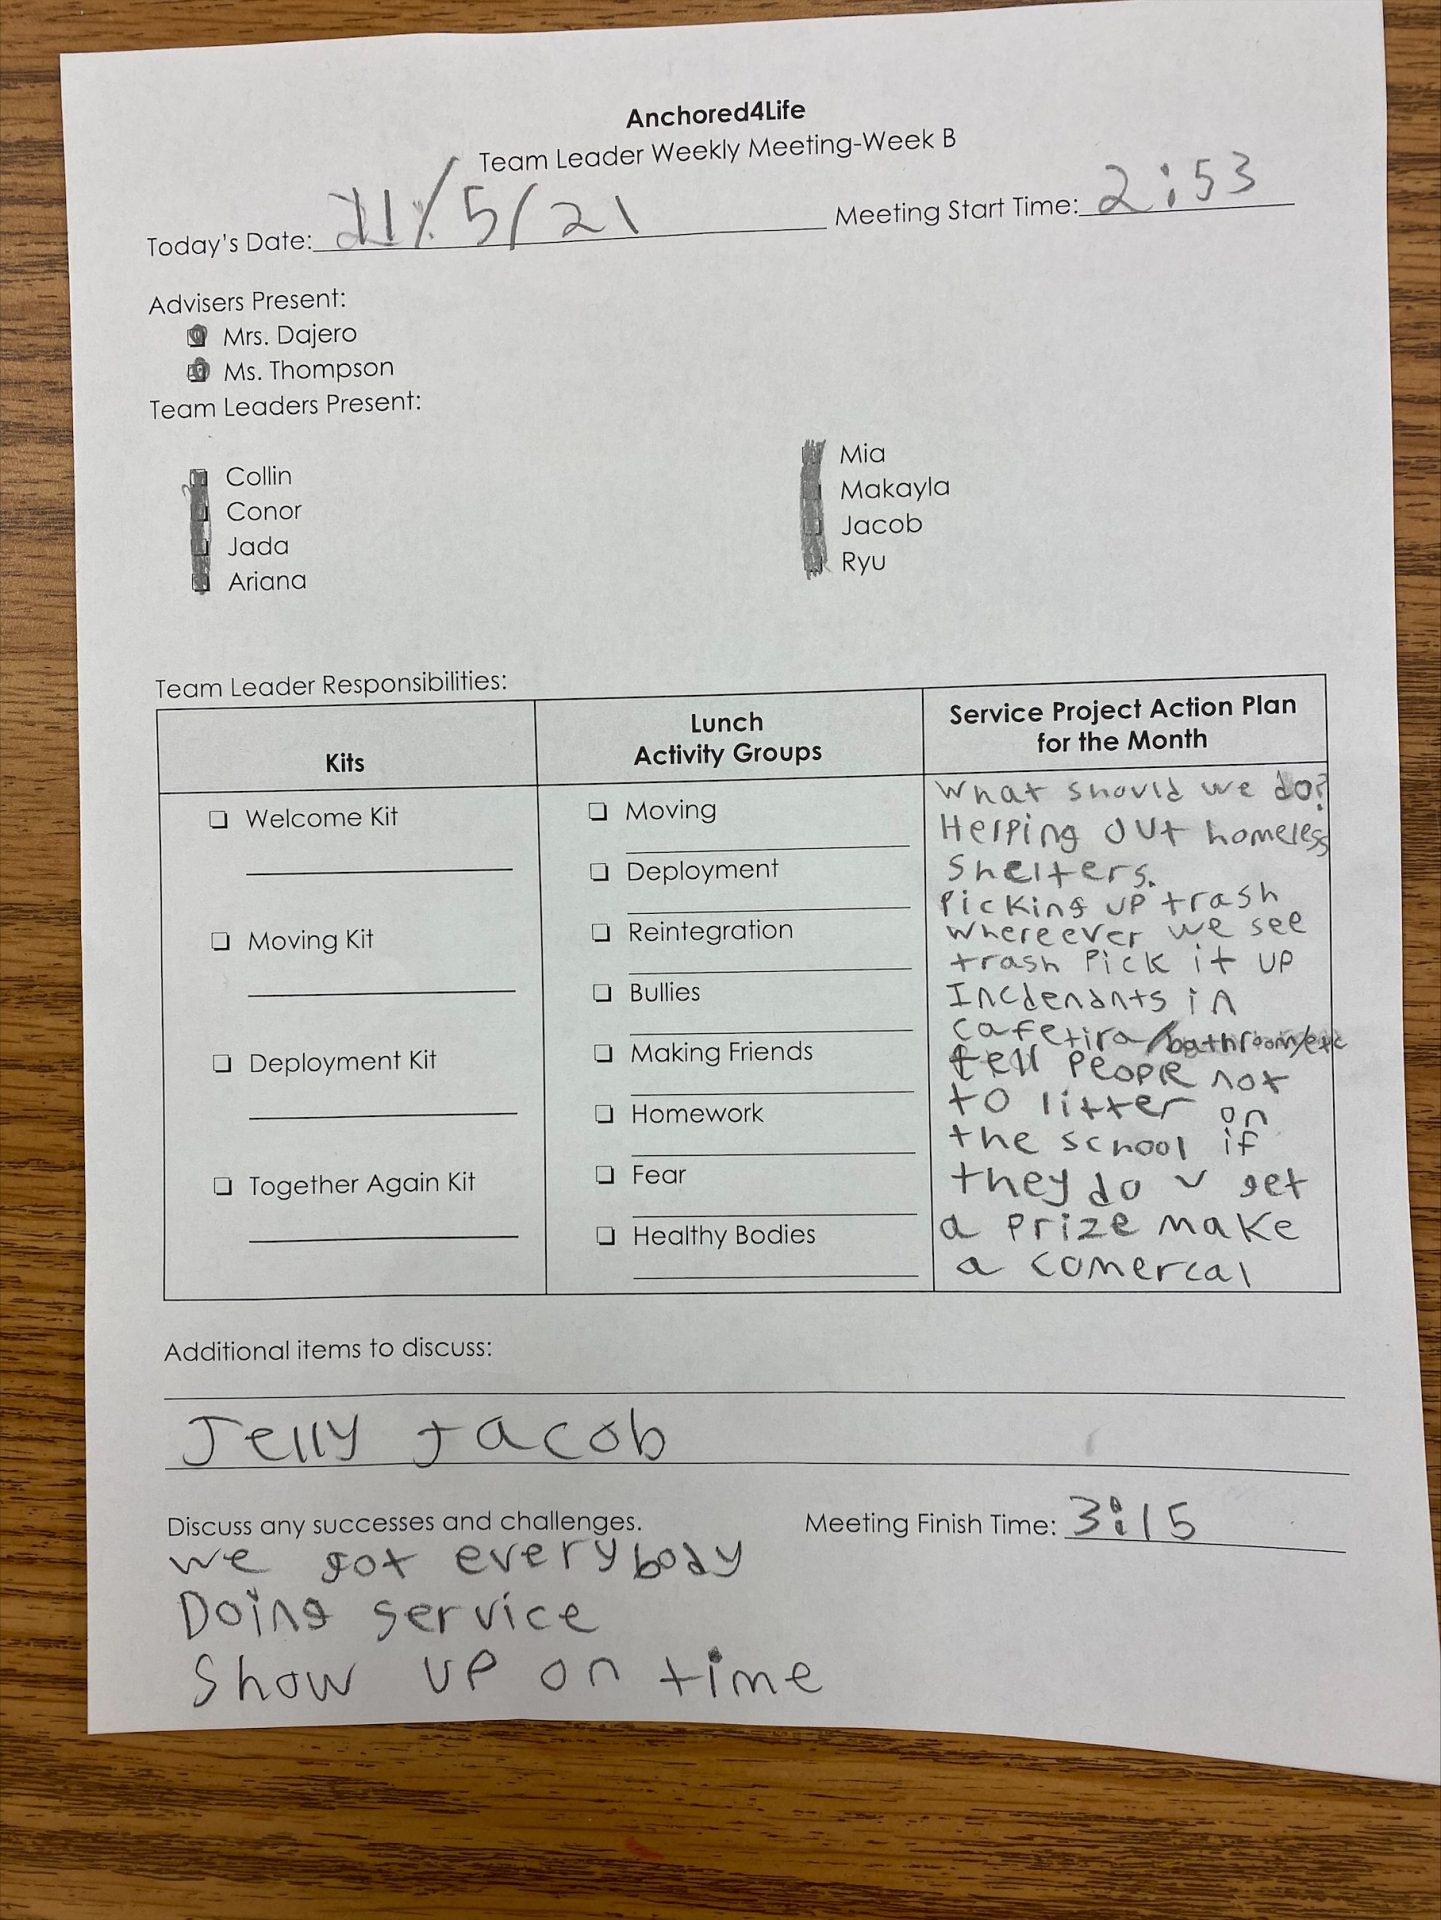 Anchored4Life
Team Leader Weekly Meeting-Week B
Today's Date: 11/5/21 Meeting Start Time: 2:53
Advisers Present:
Mrs. Dajero
Ms. Thompson
Team Leaders Present:
Collin
Conor
Jada
Ariana
Mia
Makayla
Jacob
Ryu
Team Leader Responsibilities:
Kits
Welcome Kit
Moving Kit
Deployment Kit
Together Again Kit
Lunch
Activity Groups
Moving
Deployment
Reintegration
Bullies
Making Friends
Homework
Fear
Healthy Bodies
Service Project Action Plan
for the Month
What should we do?
Helping out homeless
shelters.
Picking up trash
whereever we see
trash Pick it up
Incdenants in
cafetira/bathroom/etc
tell people not
to litter on
the school if
they do u get
a prize make
a comercal
Additional items to discuss:
Jelly Jacob
Discuss any successes and challenges.
Meeting Finish Time: 3:15
we got everybody
Doing service
Show up on time